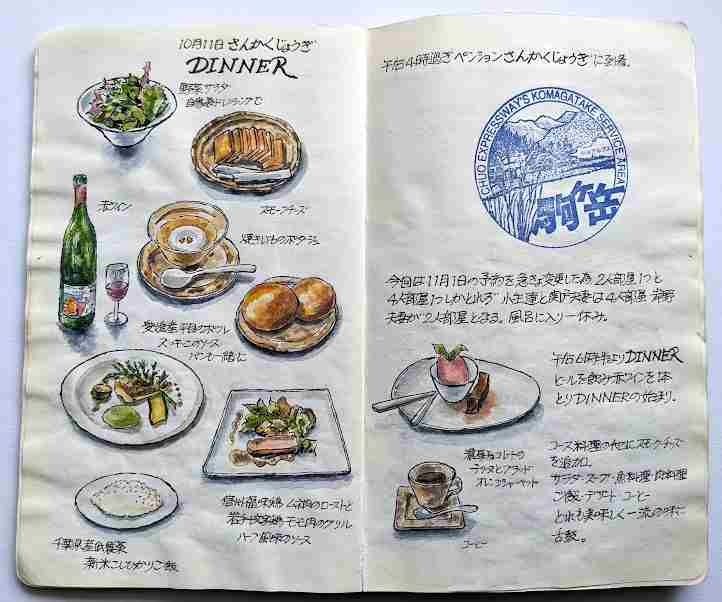 10月11日 さんかくじょうぎ
DINNER
野菜サラダ
自家製ドレッシングで
スモークチーズ
赤ワイン
焼きいものポタージュ
愛媛産 平目のポワレ
ズッキーニのソース
パンも一緒に
信州福味鶏 ムネ肉のローストと
モモ肉のグリル
ハーブ風味のソース
千葉県産低農薬
新米こしひかりご飯
午后4時過ぎペンションさんかくじょうぎに到着。
CHUO EXPRESSWAY'S KOMAGATAKE SERVICE AREA
駒ヶ岳
今回は11月1日の予約を急きょ変更した為 2人部屋1つと
4人部屋1つしかとれず 小生達と 夫妻は4人部屋
夫妻が2人部屋となる。風呂に入り一休み。
午后6時半よりDINNER
ビールを飲み赤ワインを1本
とりDINNERの始まり。
濃厚なショコラの
テリーヌとブラッド
オレンジシャーベット
コーヒー
コース料理の他にスモークチーズ
を追加。
サラダ・スープ・魚料理・肉料理
ご飯・デザート コーヒー
どれも美味しく一流の味に
舌鼓。